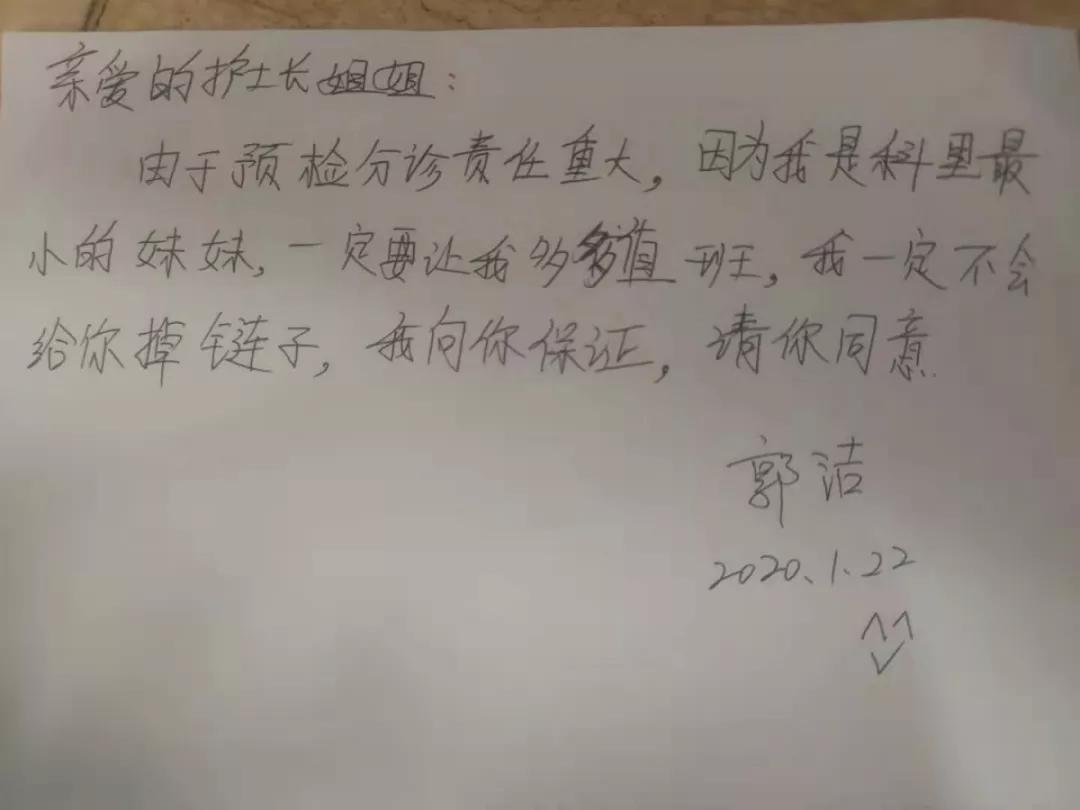 亲爱的护士长姐姐：
由于预检分诊责任重大，因为我是科里最
小的妹妹，一定要让我多多值班，我一定不会
给你掉链子，我向你保证，请你同意
郭洁
2020.1.22